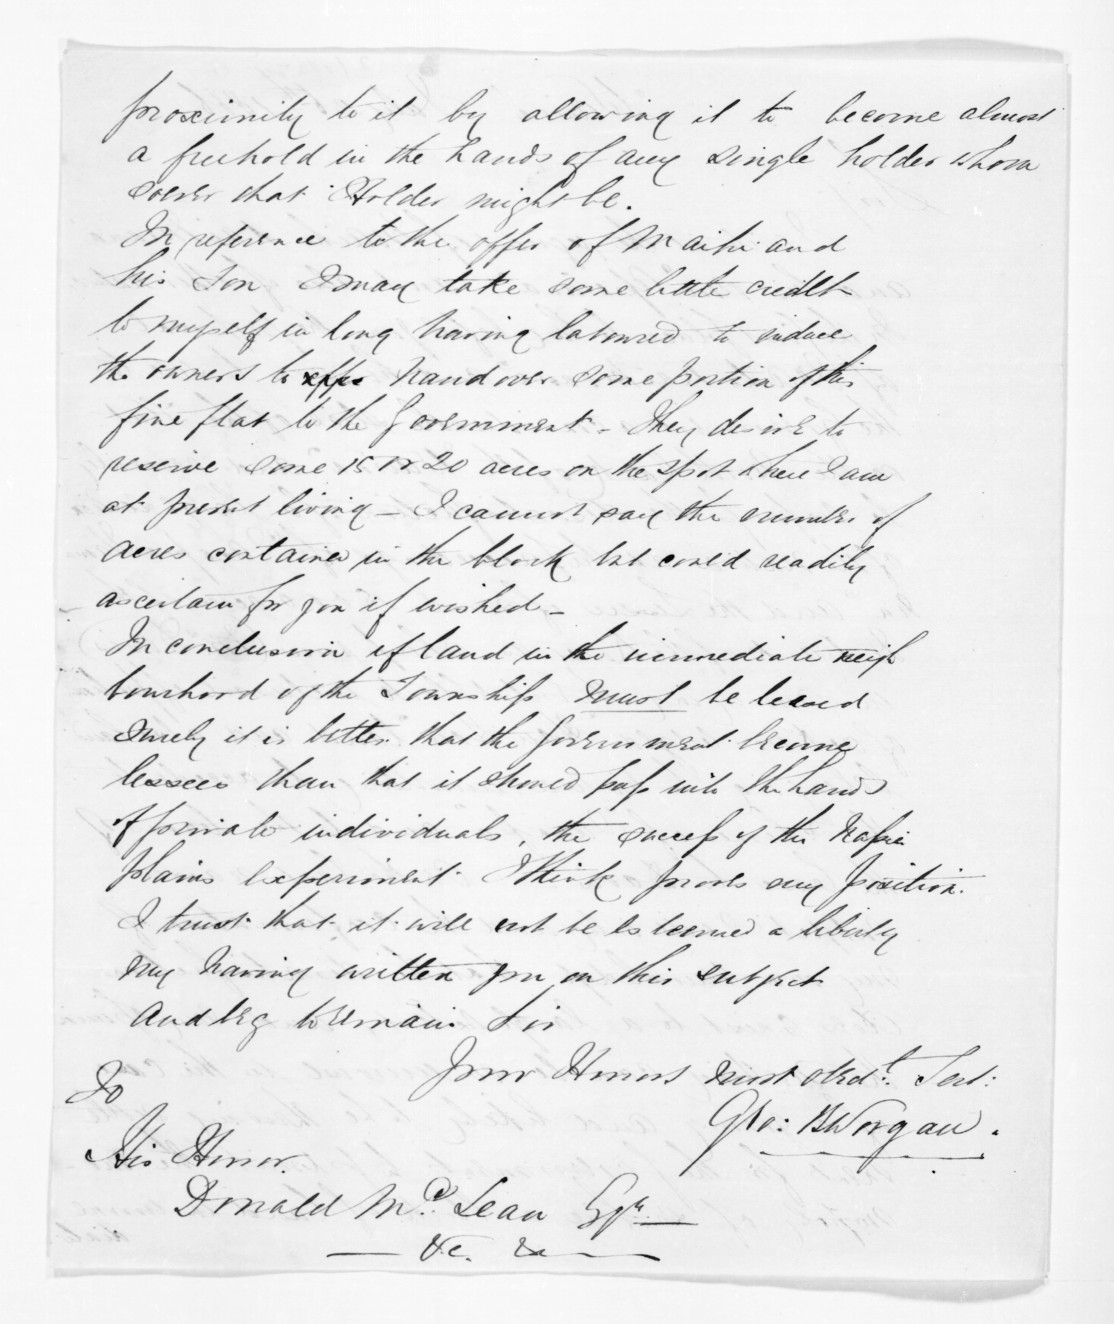 proximity to it by allowing it to become almost
a freehold in the hands of any single holder whom
soever that Holder might be.
In reference to the offer of Maihi and
his Son I may take some little credit
to myself in long having laboured to induce
the owners to offer hand over some portion of this
fine flat to the Government - They desire to
reserve some 15 or 20 acres on the spot where I am
at present living - I cannot say the number of
acres contained in the block but could readily
ascertain for you if wished -
In conclusion if land in the immediate neigh
bourhood of the Township must be leased
surely it is better that the Government become
lessees than that it should pass into the hands
of private individuals, the success of the Napier
plains experiment I think proves my position.
I trust that it will not be esteemed a liberty
my having written you on this subject
And beg to remain Sir
Your Honors most obdt. Servt:
Geo: B Worgan.
To
His Honor.
Donald McLean Esqre
&c. &c